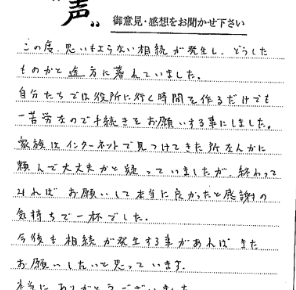 "声"
御意見・感想をお聞かせ下さい
この度、思いもよらない相続が発生し、どうした
ものかと途方に暮れていました。
自分たちでは役所に行く時間を作るだけでも
一苦労なので手続きをお願いする事にしました。
家族はインターネットで見つけてきた所なんかに
頼んで大丈夫かと疑っていましたが、終わって
みれば お願いして本当に良かったと感謝の
気持ちで一杯でした。
今後も相続が発生する事があれば また
お願いしたいと思っています。
本当に ありがとうございました